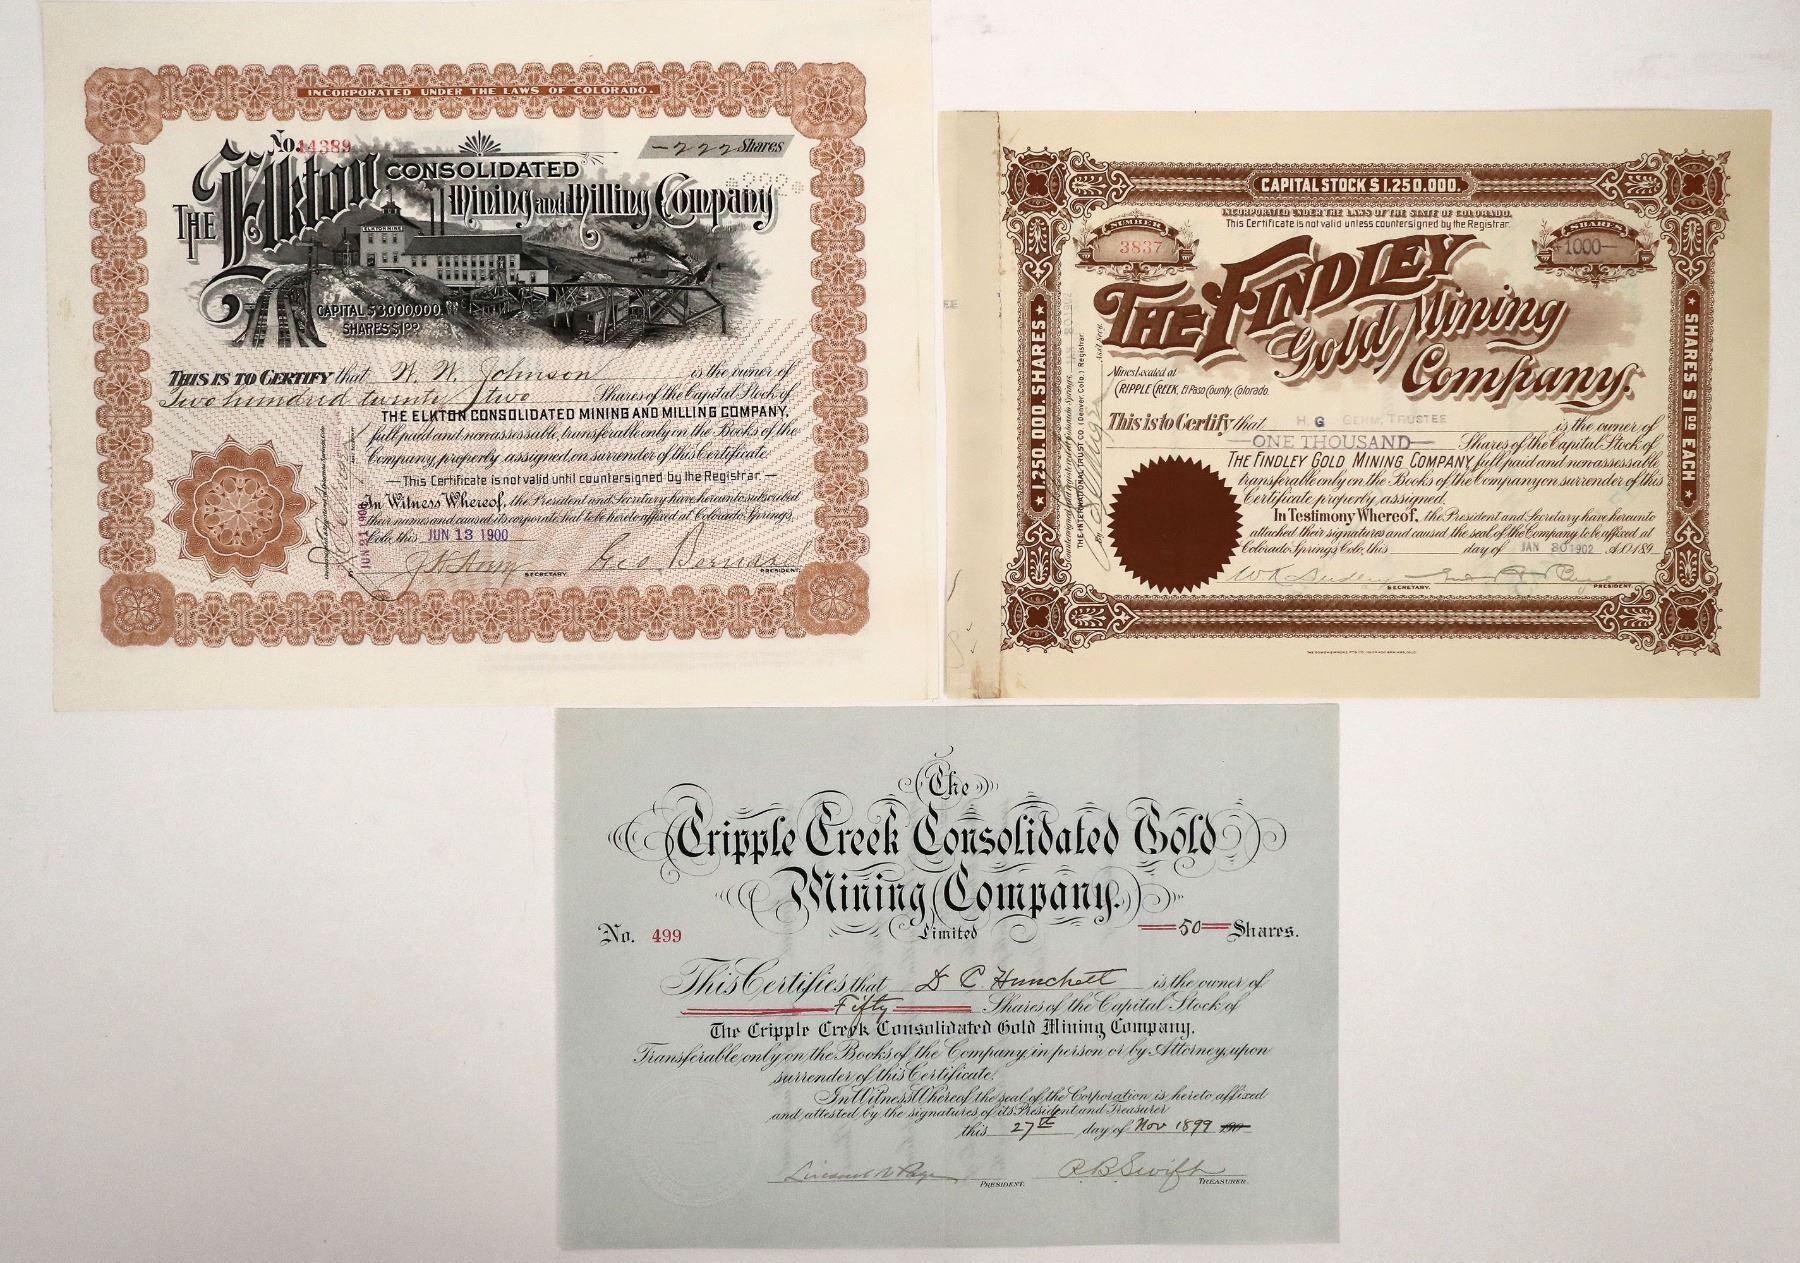 INCORPORATED UNDER THE LAWS OF COLORADO.
No. 14389
-222 Shares
THE Elkton CONSOLIDATED
Mining and Milling Company
ELKTON MINE
CAPITAL $3,000,000
SHARES $1.00
THIS IS TO CERTIFY that W. W. Johnson is the owner of
Two hundred twenty two Shares of the Capital Stock of
THE ELKTON CONSOLIDATED MINING AND MILLING COMPANY,
full paid and nonassessable, transferable only on the Books of the
Company, properly assigned, on surrender of this Certificate.
This Certificate is not valid until countersigned by the Registrar.
In Witness Whereof, the President and Secretary have hereunto subscribed
their names and caused its corporate Seal to be hereto affixed at Colorado Springs,
Colo, this JUN 13 1900
SECRETARY.
Geo. Bernard
PRESIDENT.
JUN 21 1900
CAPITAL STOCK $1,250,000.
INCORPORATED UNDER THE LAWS OF THE STATE OF COLORADO.
This Certificate is not valid unless countersigned by the Registrar.
NUMBER
3837
SHARES
-1000-
THE FINDLEY
Gold Mining
Company.
Mines Located at
CRIPPLE CREEK, El Paso County, Colorado.
This is to Certify that H. G GEHM, TRUSTEE is the owner of
ONE THOUSAND Shares of the Capital Stock of
THE FINDLEY GOLD MINING COMPANY, full paid and nonassessable
transferable only on the Books of the Company on surrender of this
Certificate properly assigned.
In Testimony Whereof, the President and Secretary have hereunto
attached their signatures and caused the seal of the Company to be affixed at
Colorado Springs, Colo, this day of JAN 30 1902 A.D. 189
SECRETARY.
PRESIDENT.
1,250,000. SHARES
SHARES $1.00 EACH
THE INTERNATIONAL TRUST CO. (Denver, Colo.) Registrar
The
Cripple Creek Consolidated Gold
Mining Company.
Limited
No. 499
50 Shares.
This Certifies that D. C. Hunchett is the owner of
Fifty Shares of the Capital Stock of
The Cripple Creek Consolidated Gold Mining Company.
Transferable only on the Books of the Company in person or by Attorney, upon
surrender of this Certificate.
In Witness Whereof the seal of the Corporation is hereto affixed
and attested by the signatures of its President and Treasurer
this 27th day of Nov 1899
PRESIDENT.
R. B. Swift
TREASURER.